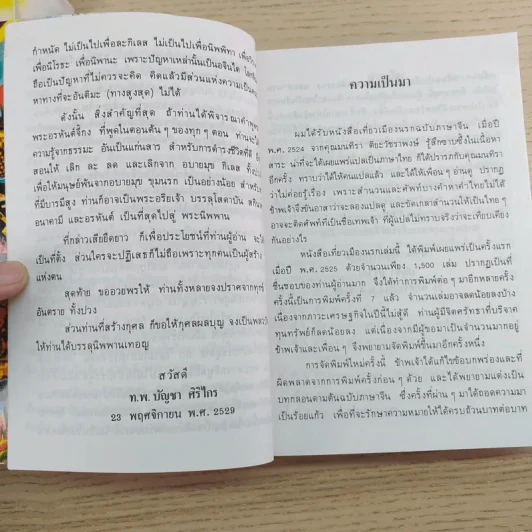 กำหนัด ไม่เป็นไปเพื่อละกิเลส ไม่เป็นไปเพื่อนิพพิทา
เพื่อนิโรธะ เพื่อนิพานะ เพราะปัญหาเหล่านั้นเป็นอจินไต
ถือเป็นปัญหาที่ไม่ควรจะคิด คิดแล้วมีส่วนแห่งความเป็น
หาทางที่จะอันติมะ (ทางสูงสุด) ไม่ได้
ดังนั้น สิ่งสำคัญที่สุด ถ้าท่านได้พิจารณาคำพูด
พระอรหันต์จี้กง ที่พูดในตอนต้น ๆ ของทุก ๆ ตอน ท่านจะ
ความรู้จากธรรมะ อันเป็นแก่นสาร สำหรับการดำรงชีวิตที่ดี
สอนให้ เลิก ละ ลด และเลิกจาก อบายมุข กิเลส
เพื่อให้มนุษย์พ้นจากอบายมุข ขุมนรก เป็นอย่างน้อย สำหรับ
ที่มีบารมีสูง ท่านก็อาจเป็นพระอริยเจ้า บรรลุโสดาบัน
อนาคามี และอรหันต์ เป็นที่สุดไปสู่ พระนิพพาน
ที่กล่าวเสียยืดยาว ก็เพื่อประโยชน์ที่ท่านผู้อ่าน จะ
เป็นที่ตั้ง ส่วนใครจะปฏิเสธก็ไม่ถือเพราะทุกคนเป็นผู้สร้าง
แห่งตน
สุดท้าย ขออวยพรให้ ท่านทั้งหลายจงปราศจากทุกข์
อันตราย ทั้งปวง
ส่วนท่านที่สร้างกุศล ก็ขอให้กุศลผลบุญ จงเป็น
ให้ท่านได้บรรลุนิพพานเทอญ
สวัสดี
ท.พ. บัญชา ศิริไกร
23 พฤศจิกายน พ.ศ. 2529
ความเป็นมา
ผมได้รับหนังสือเที่ยวเมืองนรกฉบับภาษาจีน เมื่อปี
พ.ศ. 2524 จากคุณมนทิรา รู้สึกซาบซึ้งในเนื้อหา
สาระ น่าที่จะได้เผยแพร่แปลเป็นภาษาไทย ก็ได้ปรารภกับคุณมนทิรา
อีกครั้ง ทราบว่าได้ให้คนแปลแล้ว และได้ให้เพื่อน ๆ อ่านดู ปรากฏ
ว่าไม่ค่อยรู้เรื่อง เพราะสำนวนและศัพท์บางคำหาคำไทยไม่ได้
ข้าพเจ้าจึงขันอาสาว่าจะลองแปลดู และขัดเกลาสำนวนให้เป็นไทย ๆ
อาจจะติดศัพท์ที่เป็นชื่อเทพเจ้า ที่ผู้แปลไม่ทราบจริงว่าจะเทียบเคียง
กันอย่างไร
หนังสือเที่ยวเมืองนรกเล่มนี้ ได้พิมพ์เผยแพร่เป็นครั้งแรก
เมื่อปี พ.ศ. 2525 ด้วยจำนวนเพียง 1,500 เล่ม ปรากฏเป็นที่
ชื่นชอบของท่านผู้อ่านมาก จึงได้ทำการพิมพ์ต่อ ๆ มาอีกหลายครั้ง
ครั้งนี้เป็นการพิมพ์ครั้งที่ 7 แล้ว จำนวนเล่มอาจลดน้อยลงบ้าง
เนื่องจากภาวะเศรษฐกิจในปีนี้ไม่สู้ดี ท่านผู้มีจิตศรัทธาที่บริจาค
ทุนทรัพย์ก็ลดน้อยลง แต่เนื่องจากมีผู้ขอมาเป็นจำนวนมากอยู่
ข้าพเจ้าและเพื่อน ๆ จึงพยายามจัดพิมพ์ขึ้นมาอีกครั้งหนึ่ง
การจัดพิมพ์ใหม่ครั้งนี้ ข้าพเจ้าได้แก้ไขข้อบกพร่องและที่
ผิดพลาดจากการพิมพ์ครั้งก่อน ๆ ด้วย และได้พยายามแต่งเป็น
บทกลอนตามต้นฉบับภาษาจีน ซึ่งครั้งที่ผ่าน ๆ มาได้ถอดความมา
เป็นร้อยแก้ว เพื่อที่จะรักษาความหมายให้ได้ครบถ้วนบทต่อบท